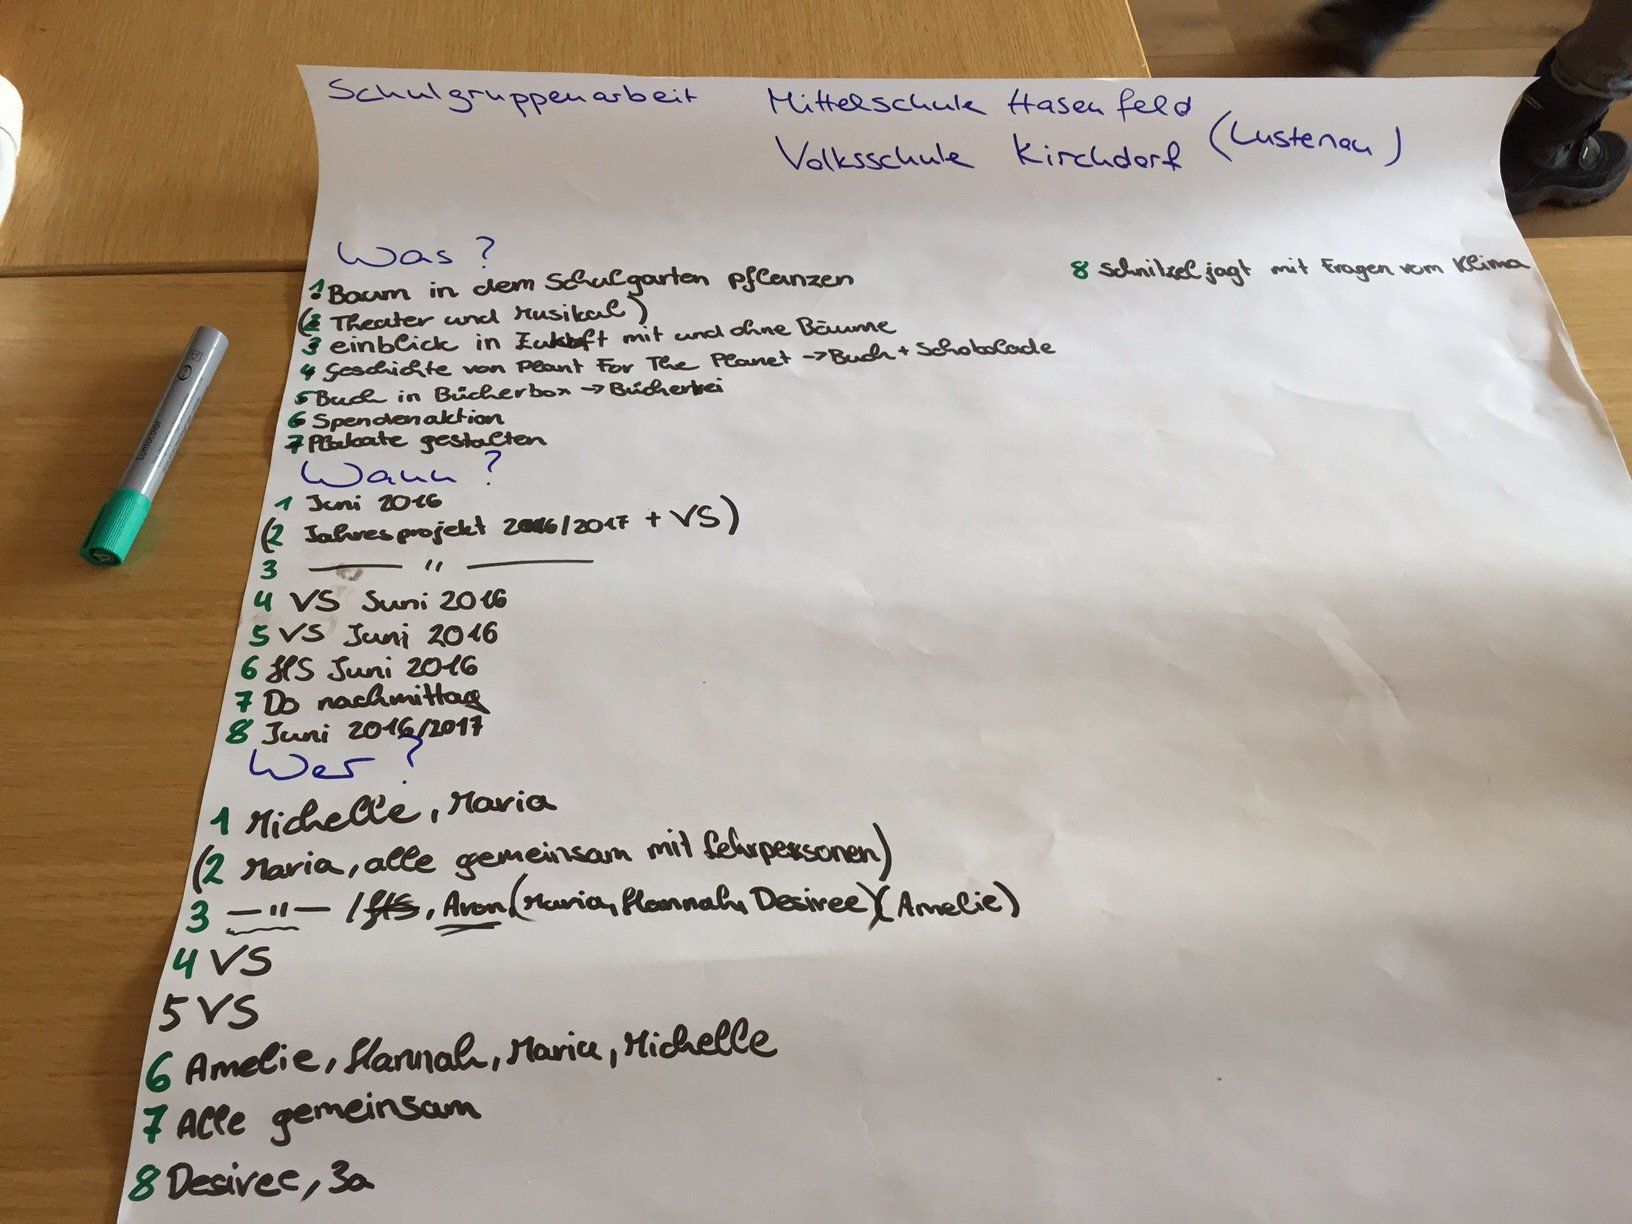 Schulgruppenarbeit Mittelschule Hasenfeld
Volksschule Kirchdorf (Lustenau)
Was?
1 Baum in dem Schulgarten pflanzen
(2 Theater und Musikal)
3 einblick in Zukuft mit und ohne Bäume
4 Geschichte von Plant For The Planet → Buch + Schokolade
5 Buch in Bücherbox → Bücherei
6 Spendenaktion
7 Plakate gestalten
8 Schnitzeljagt mit Fragen vom Klima
Wann?
1 Juni 2016
(2 Jahresprojekt 2016/2017 + VS)
3 — " —
4 VS Juni 2016
5 VS Juni 2016
6 HS Juni 2016
7 Do nachmittag
8 Juni 2016/2017
Wer?
1 Michelle, Maria
(2 Maria, alle gemeinsam mit Lehrpersonen)
3 — " — / HS, Aron (Maria, Hannah, Desiree) (Amelie)
4 VS
5 VS
6 Amelie, Hannah, Maria, Michelle
7 Alle gemeinsam
8 Desiree, 3a
Lumocolor